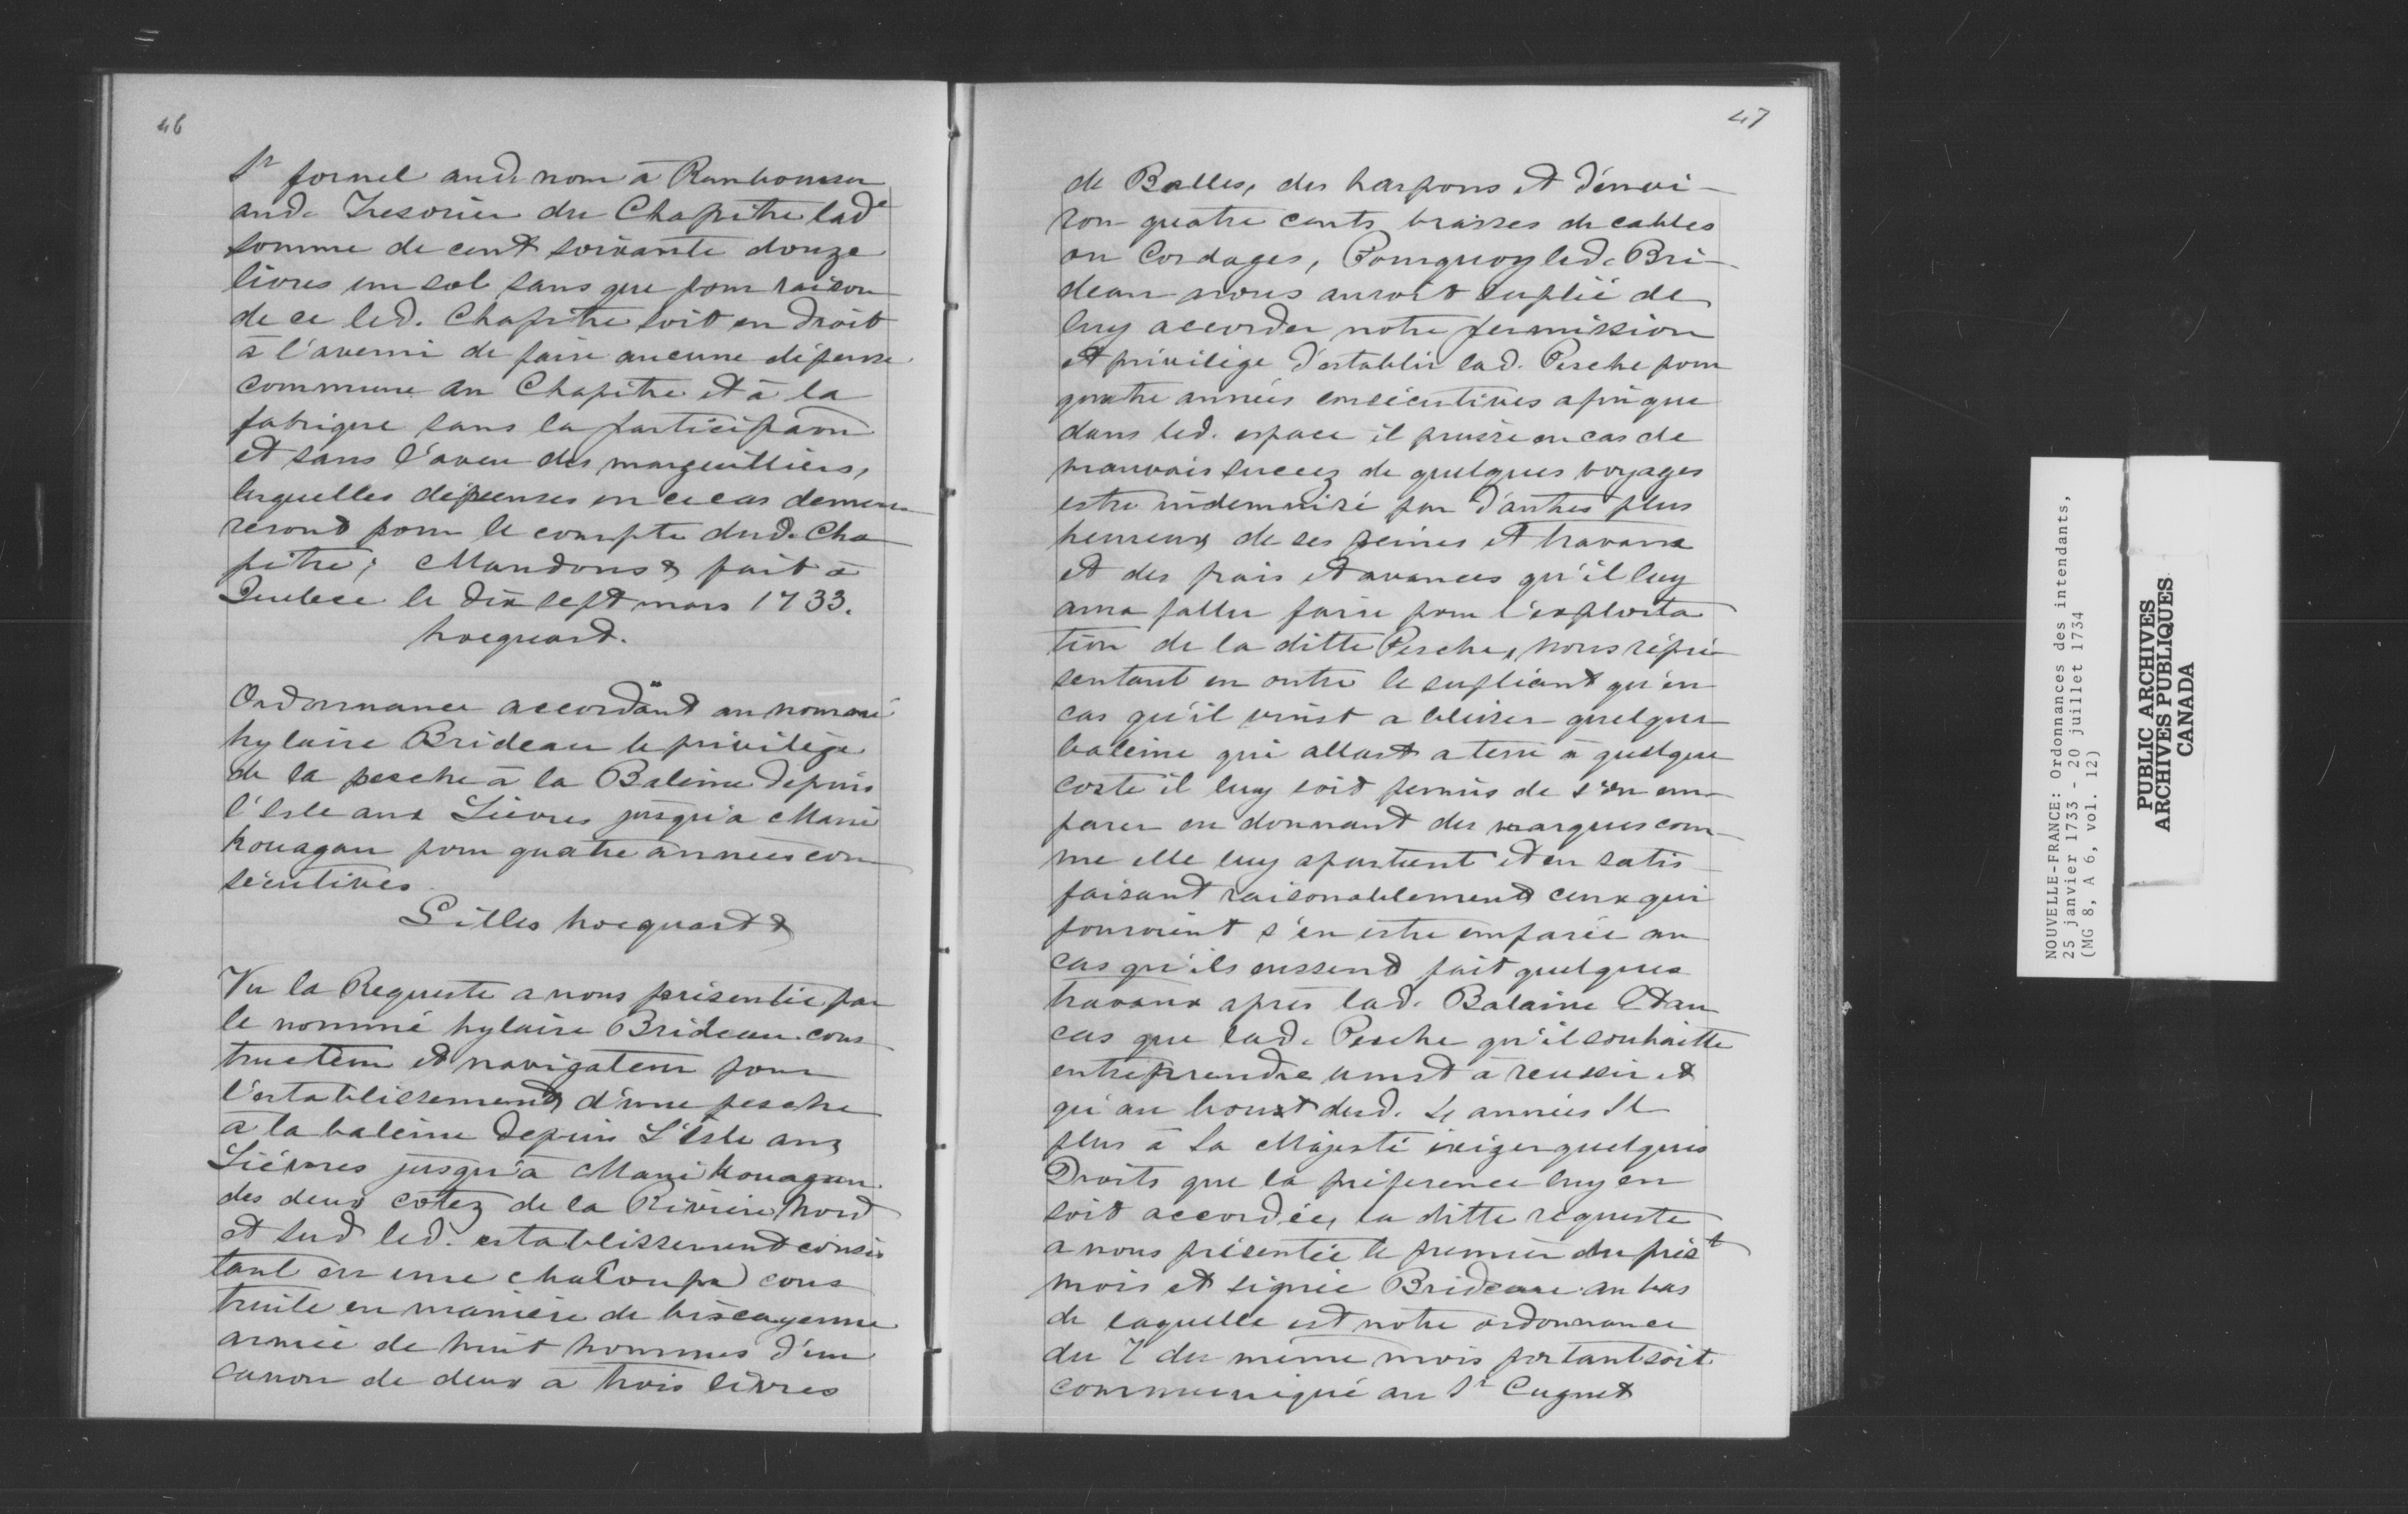 46
Sr fornel aud. nom à Rembourser
aud. Tresorier du Chapitre lade
somme de cent soixante douze
livres un sol sans que pour raison
de ce led. Chapitre soit en droit
à l'avenir de faire aucune dépense
commune au Chapitre et à la
fabrique sans la participaon
et sans l'aveu des marguilliers,
lesquelles dépenses en ce cas demeu-
reront pour le compte dud. Cha
pitre; Mandons & fait à
Quebec le dix sept mars 1733.
hocquart.
Ordonnance accordant au nommé
hylaire Brideau le privilège
de la pesche à la Baleine depuis
l'Isle aux Lièvres jusqu'a Mani
kouagan pour quatre années con
sécutives.
Gilles hocquart &
Vu la Requeste a nous présentée par
le nommé hylaire Brideau cons
tructeur et navigateur pour
l'establissement d'une pesche
a la baleine depuis L'Isle aux
Lièvres jusqu'à Manikouagan
des deux cotez de la Rivière Nord
et sud led. establissement consis
tant en une chaloupe cons
truite en manière de biscayenne
armée de huit hommes d'un
canon de deux a trois livres
47
de Balles, des harpons et d'envi-
ron quatre cents brasses de cables
ou Cordages, Pourquoy led. Bri-
deau nous auroit suplié de
luy accorder notre permission
et privilège d'establir lad. Pesche pour
quatre années consécutives afin que
dans led. espace il puisse en cas de
mauvais succez de quelques voyages
estre indemnisé par d'autres plus
heureux de ses peines et travaux
et des frais et avances qu'il luy
aura fallu faire pour l'exploita
tion de la ditte Pesche, nous répré
sentant en outre le supliant qu'en
cas qu'il vinst a blesser quelque
baleine qui allast a terre à quelque
coste il luy soit permis de s'en em-
parer en donnant des marques com-
me elle luy apartient et en satis
faisant raisonablement ceux qui
pouroient s'en estre emparée au
cas qu'ils eussent fait quelques
travaux après lad. Balaine Et au
cas que lad. Pesche qu'il souhaitte
entreprendre vinst à reussir et
qu'au boust desd. 4 années Il
plus à Sa Majesté éxiger quelques
Droits que la préference luy en
soit accordée, la ditte requeste
a nous présentée le premier du prést
mois et signée Brideau au bas
de laquelle est notre ordonnance
du 7 du même mois portant soit
communiqué au Sr Cugnet
NOUVELLE-FRANCE: Ordonnances des intendants,
25 janvier 1733 - 20 juillet 1734
(MG 8, A 6, vol. 12)
PUBLIC ARCHIVES
ARCHIVES PUBLIQUES
CANADA